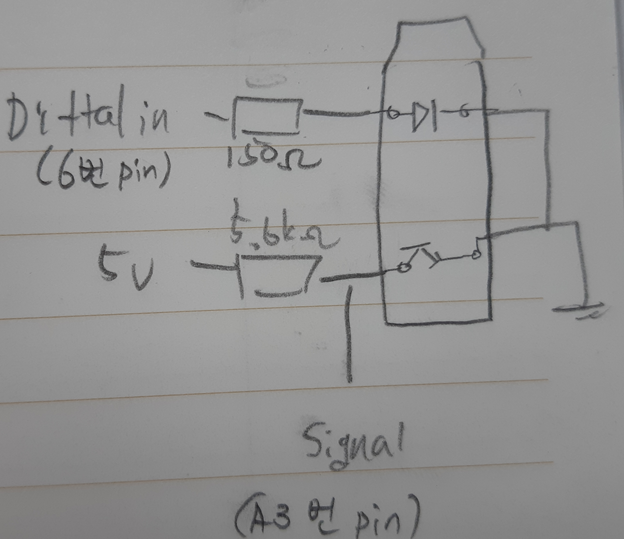 Digital in
(6번 pin)
150Ω
5.6kΩ
5V
Signal
(A3 번 pin)